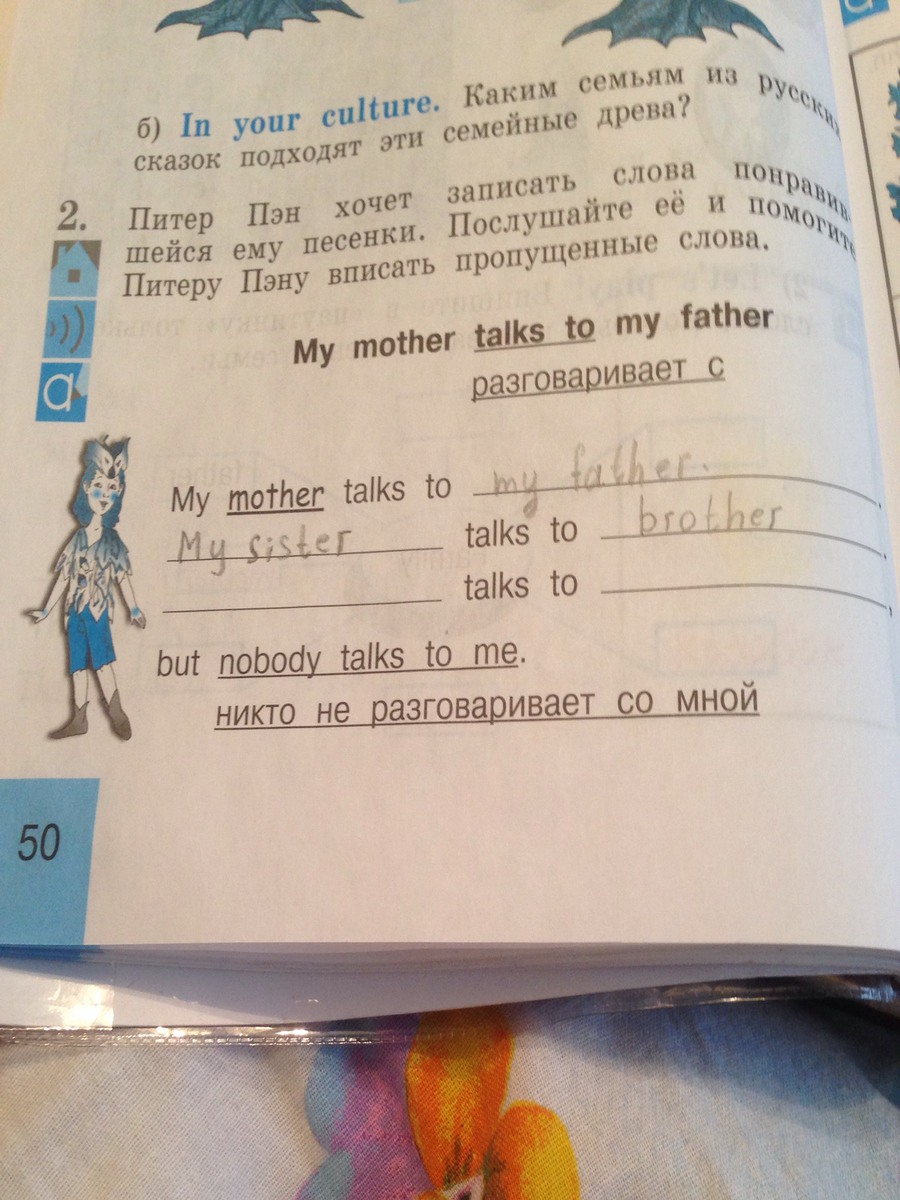 б) In your culture. Каким семьям из русских
сказок подходят эти семейные древа?
2. Питер Пэн хочет записать слова понравив-
шейся ему песенки. Послушайте её и помогите
Питеру Пэну вписать пропущенные слова.
My mother talks to my father
разговаривает с
My mother talks to my father. .
My sister talks to brother .
talks to ,
but nobody talks to me.
никто не разговаривает со мной
50